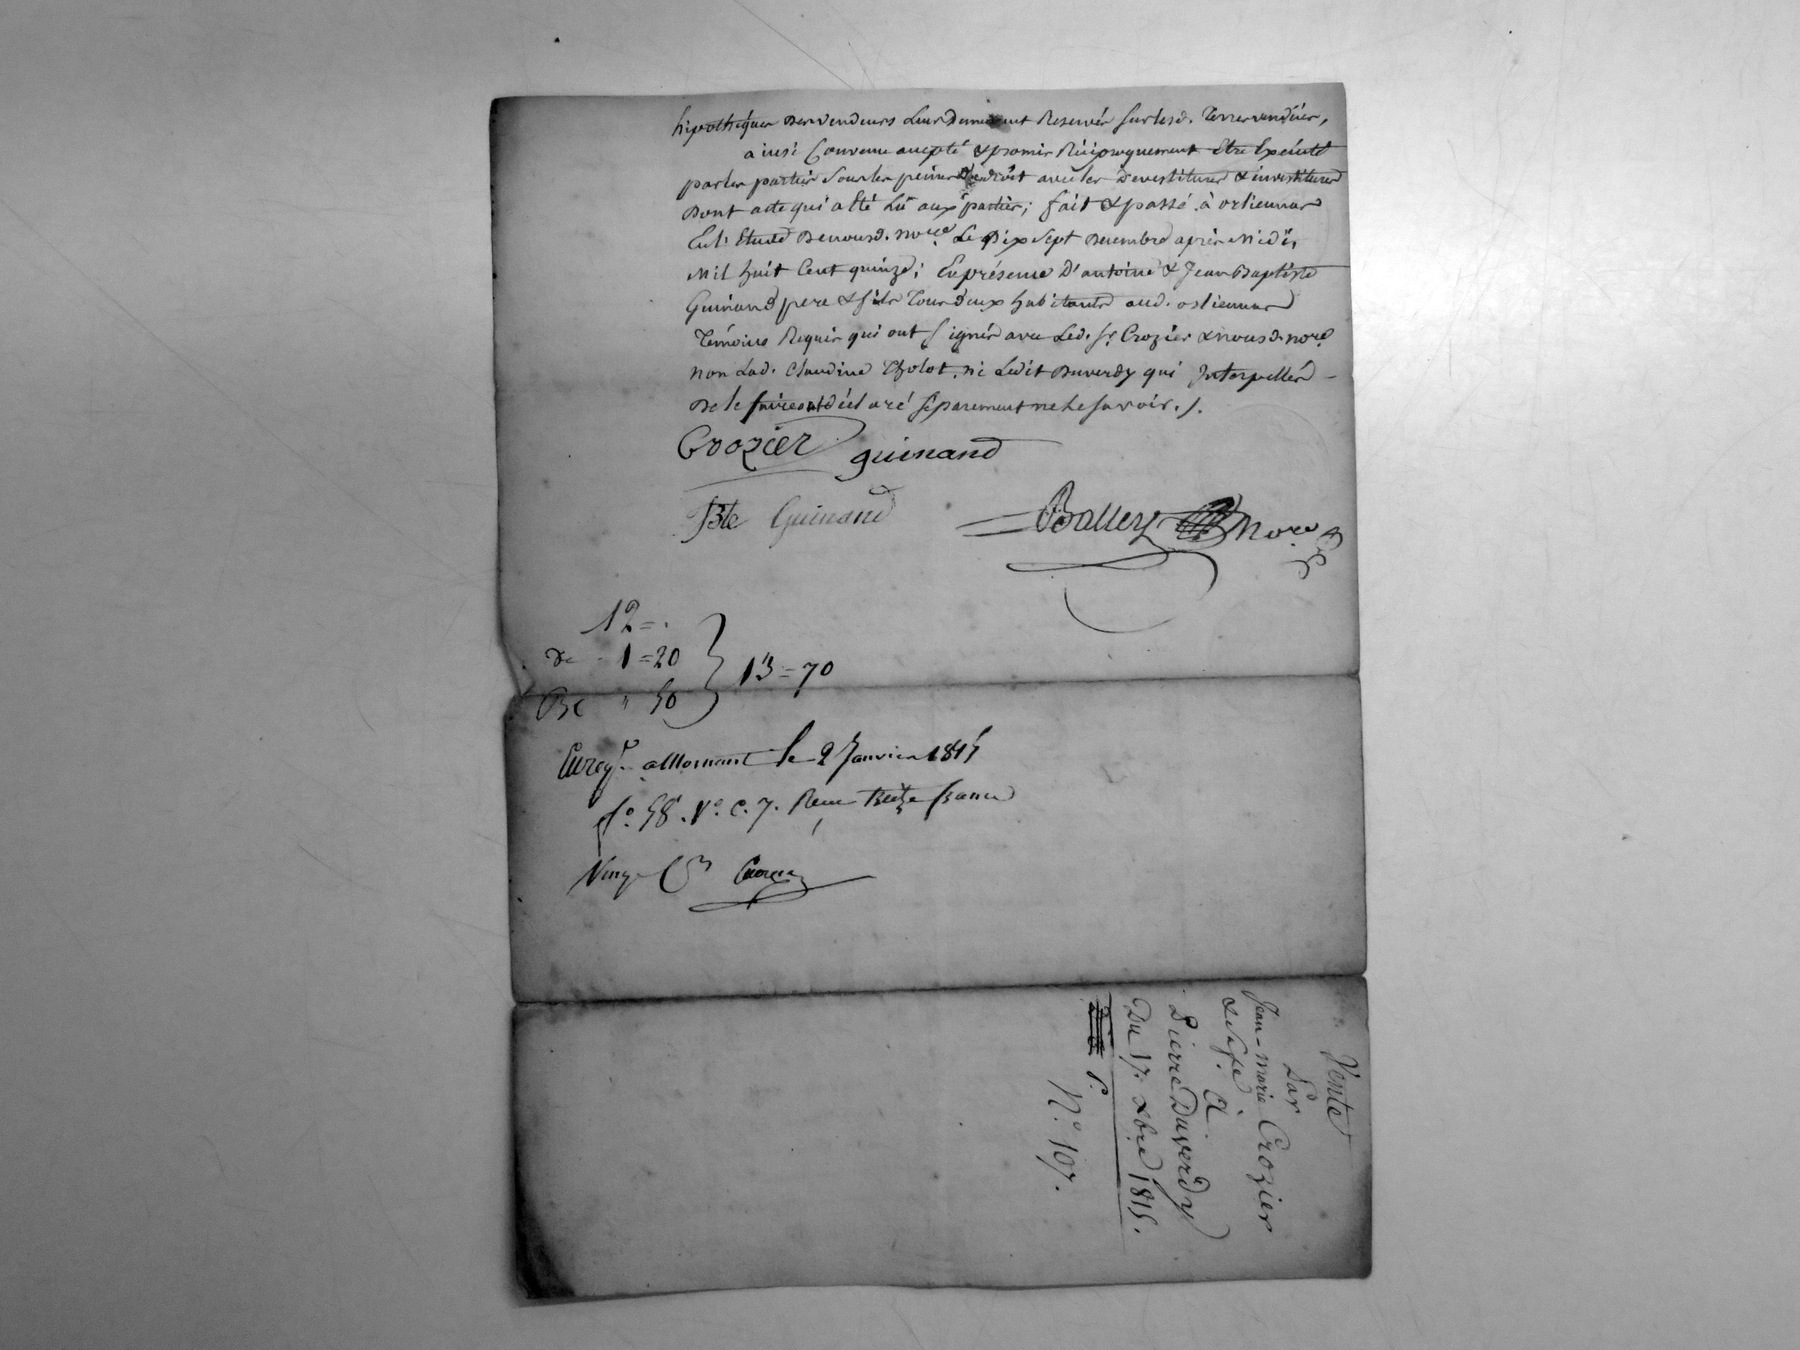 hipothéques des vendeurs Leur demeurant Reservés sur lesd. Terres vendües,
ainsi Convenu accepté & promis Réciproquement Etre Exécuté
par les parties sous les peines de droit avec les devestitures & investitures
Dont acte qui a été Lu aux parties; fait & passé à orliennas
En l'Etude de nousd. nore. Le Dix sept decembre après Midi,
Mil huit Cent quinze; En présence D'antoine & Jean Baptiste
Guinand pere & fils Tous deux habitants aud. orliennas
Témoins Requis qui ont signés avec Led. Sr. Crozier & nousd. nore.
non Lad. Claudine Tholot, ni Ledit Duverdy qui Interpellés
De le faire ont déclaré séparement ne le savoir ./.
Crozier guinand
JBte Guinand
Balley nore
12 = .
de 1 = 20
Be " 50
13 = 70
Enregt. a Mornant le 2 Janvier 181
fo. 58. Vo. C. 7. Recu Treize francs
Vingt Cs
Vente
Par
Jean-Marie Crozier
& sa fe. à
Pierre Duverdy
Du 17. Xbre 1815.
N.o 107.